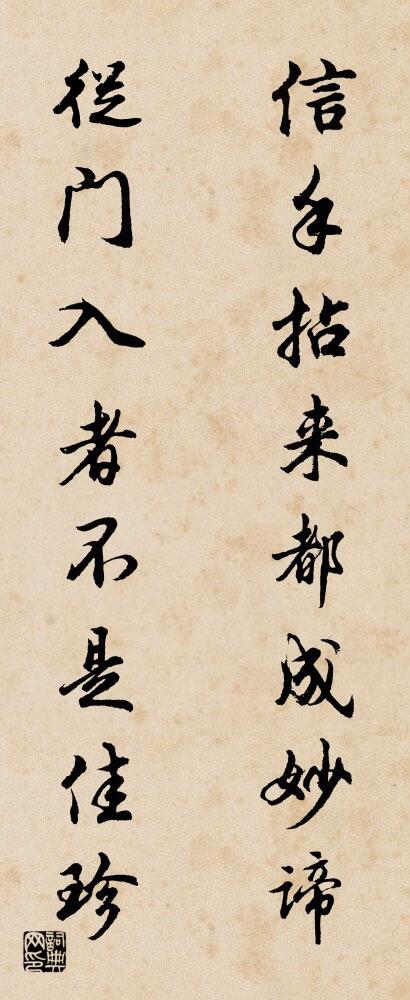 信手拈来都成妙谛
従门入者不是佳珍
詞典網印